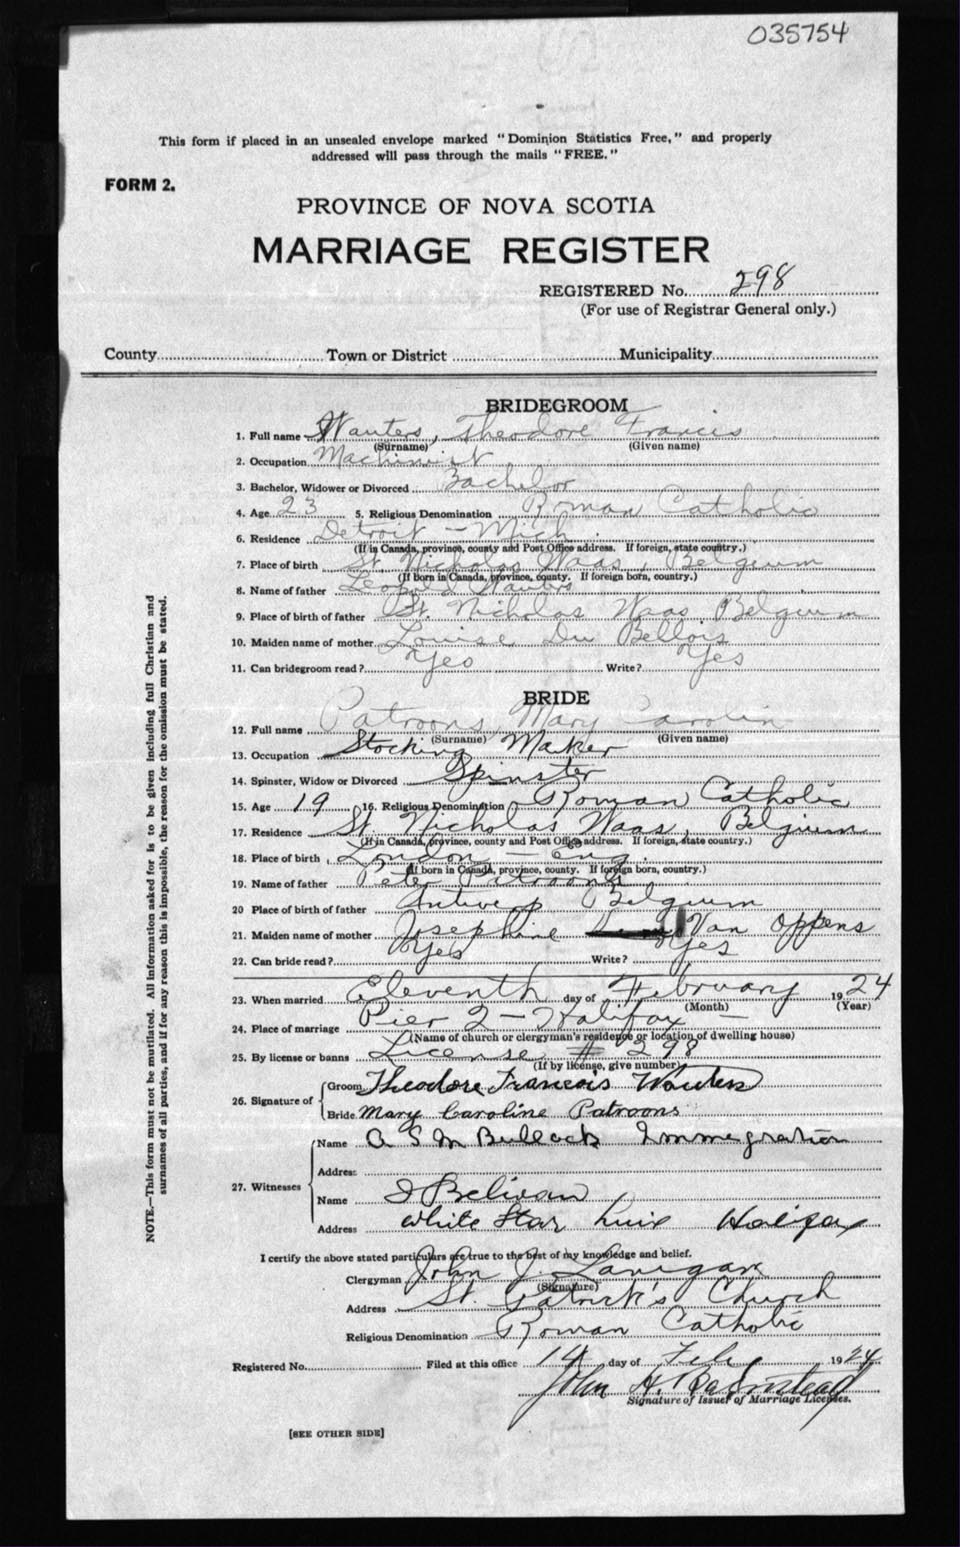 035754
This form if placed in an unsealed envelope marked "Dominion Statistics Free," and properly
addressed will pass through the mails "FREE."
FORM 2.
PROVINCE OF NOVA SCOTIA
MARRIAGE REGISTER
REGISTERED No. 298
(For use of Registrar General only.)
County Town or District Municipality
BRIDEGROOM
1. Full name Wauters, Theodore Francis
(Surname) (Given name)
2. Occupation Machinist
3. Bachelor, Widower or Divorced Bachelor
4. Age 23 5. Religious Denomination Roman Catholic
6. Residence Detroit - Mich.
(If in Canada, province, county and Post Office address. If foreign, state country.)
7. Place of birth St. Nicholas Waas, Belgium
(If born in Canada, province, county. If foreign born, country.)
8. Name of father Leopold Wauters
9. Place of birth of father St. Nicholas Waas Belgium
10. Maiden name of mother Louise Du Bellois
11. Can bridegroom read? Yes Write? Yes
BRIDE
12. Full name Patroons, Mary Carolin
(Surname) (Given name)
13. Occupation Stocking Maker
14. Spinster, Widow or Divorced Spinster
15. Age 19 16. Religious Denomination Roman Catholic
17. Residence St. Nicholas Waas, Belgium
(If in Canada, province, county and Post Office address. If foreign, state country.)
18. Place of birth London - Eng.
(If born in Canada, province, county. If foreign born, country.)
19. Name of father Peter Patroons
20 Place of birth of father Antwerp Belgium
21. Maiden name of mother Josephine Van Oppens
22. Can bride read? Yes Write? Yes
23. When married Eleventh day of February 1924
(Month) (Year)
24. Place of marriage Pier 2 - Halifax -
(Name of church or clergyman's residence or location of dwelling house)
25. By license or banns License # 298
(If by license, give number)
26. Signature of
Groom Theodore Francois Wauters
Bride Mary Caroline Patroons
27. Witnesses
Name A S M Bullock Immegration
Address
Name J Belivan
Address White Star Line Halifax
I certify the above stated particulars are true to the best of my knowledge and belief.
Clergyman John J. Lanigan
(Signature)
Address St. Patrick's Church
Religious Denomination Roman Catholic
Registered No. Filed at this office 14 day of Feb 1924
John H. Barnstead
Signature of Issuer of Marriage Licenses.
[SEE OTHER SIDE]
NOTE.—This form must not be mutilated. All information asked for is to be given including full Christian and
surnames of all parties, and if for any reason this is impossible, the reason for the omission must be stated.